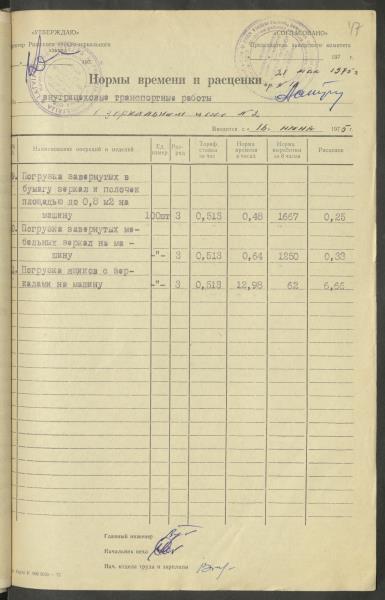 «УТВЕРЖДАЮ»
«СОГЛАСОВАНО»
завода
Председатель заводского комитета
197
197 г.
21 мая 1975г.
47
Нормы времени и расценки
внутрицеховые транспортные работы
в зеркальном цехе № 2
Вводятся с « 16. июня 1975 г.
Наименование операций и изделий
Ед. измер
Раз-ряд
Тариф. ставка за час
Норма времени в часах
Норма выработки за 8 часов
Расценки
9. Погрузка завернутых в
бумагу зеркал и полочек
площадью до 0,8 м2 на
машину 100шт 3 0,513 0,48 1667 0,25
0. Погрузка завернутых ме-
бельных зеркал на ма -
шину -"- 3 0,513 0,64 1250 0,33
1. Погрузка ящиков с зер-
калами на машину -"- 3 0,513 12,98 62 6,66
Главный инженер
Начальник цеха
Нач. отдела труда и зарплаты